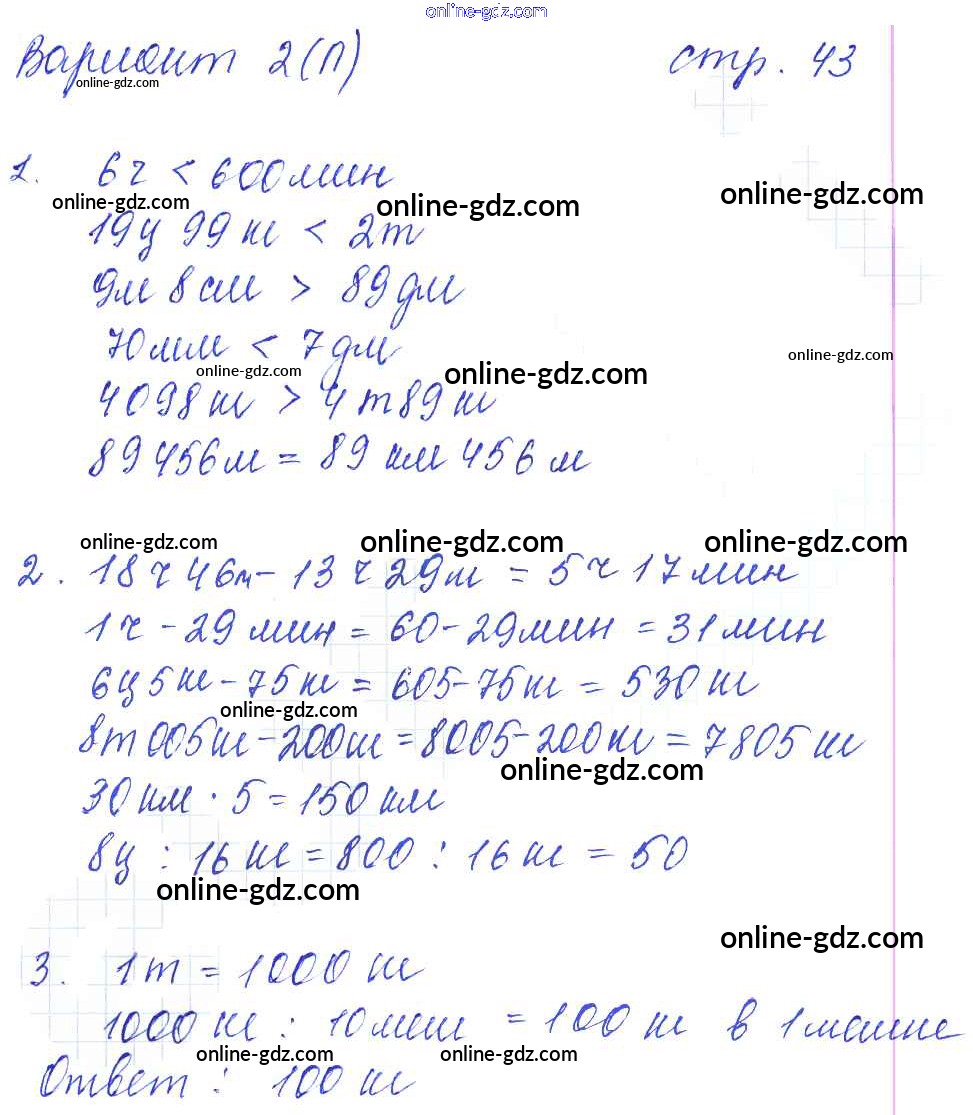 online-gdz.com
Вариант 2(П) стр. 43
online-gdz.com
1. 6 ч < 600 мин
online-gdz.com online-gdz.com online-gdz.com
19ц 99 кг < 2т
9м 8 см > 89 дм
70мм < 7 дм
online-gdz.com online-gdz.com online-gdz.com
4098 кг > 4 т 89 кг
89 456 м = 89 км 456 м
online-gdz.com online-gdz.com online-gdz.com
2. 18 ч 46м - 13 ч 29м = 5 ч 17 мин
1 ч - 29 мин = 60 - 29 мин = 31 мин
6ц 5 кг - 75 кг = 605 - 75 кг = 530 кг
online-gdz.com
8т 005 кг - 200 кг = 8005 - 200 кг = 7805 кг
online-gdz.com
30 км · 5 = 150 км
8ц : 16 кг = 800 : 16 кг = 50
online-gdz.com
online-gdz.com
3. 1 т = 1000 кг
1000 кг : 10 меш = 100 кг в 1 мешке
online-gdz.com online-gdz.com
Ответ : 100 кг